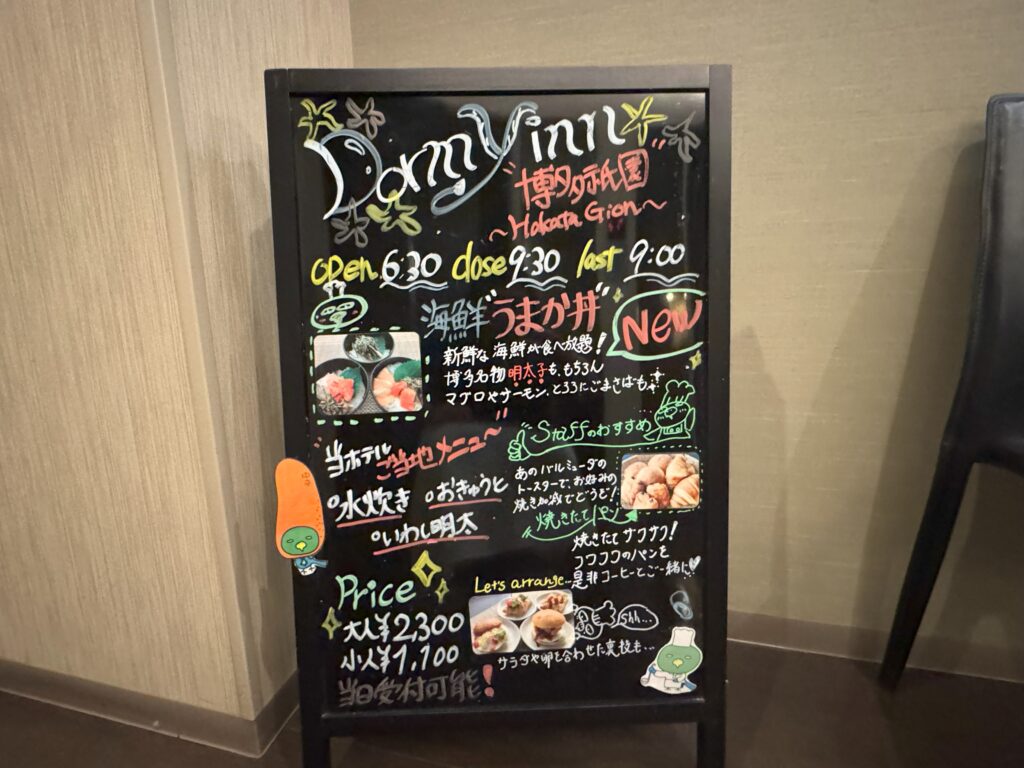 Dormy inn
"博多祇園"
~Hakata Gion~
open 6:30 close 9:30 last 9:00
海鮮"うまか丼"
New
新鮮な海鮮が食べ放題!
博多名物明太子も、もちろん
マグロやサーモン、ところにごまさばも
Staffのおすすめ
当ホテル
ご当地メニュー
・水炊き ・おきゅうと
・いわし明太
あのバルミューダの
トースターで、お好みの
焼き加減でどうぞ!
焼きたてパン
焼きたてサクサク!
フワフワのパンを
是非コーヒーとご一緒に
Price
大人¥2,300
小人¥1,100
当日受付可能!
Let's arrange...
shh...
サラダや卵を合わせた裏技も...